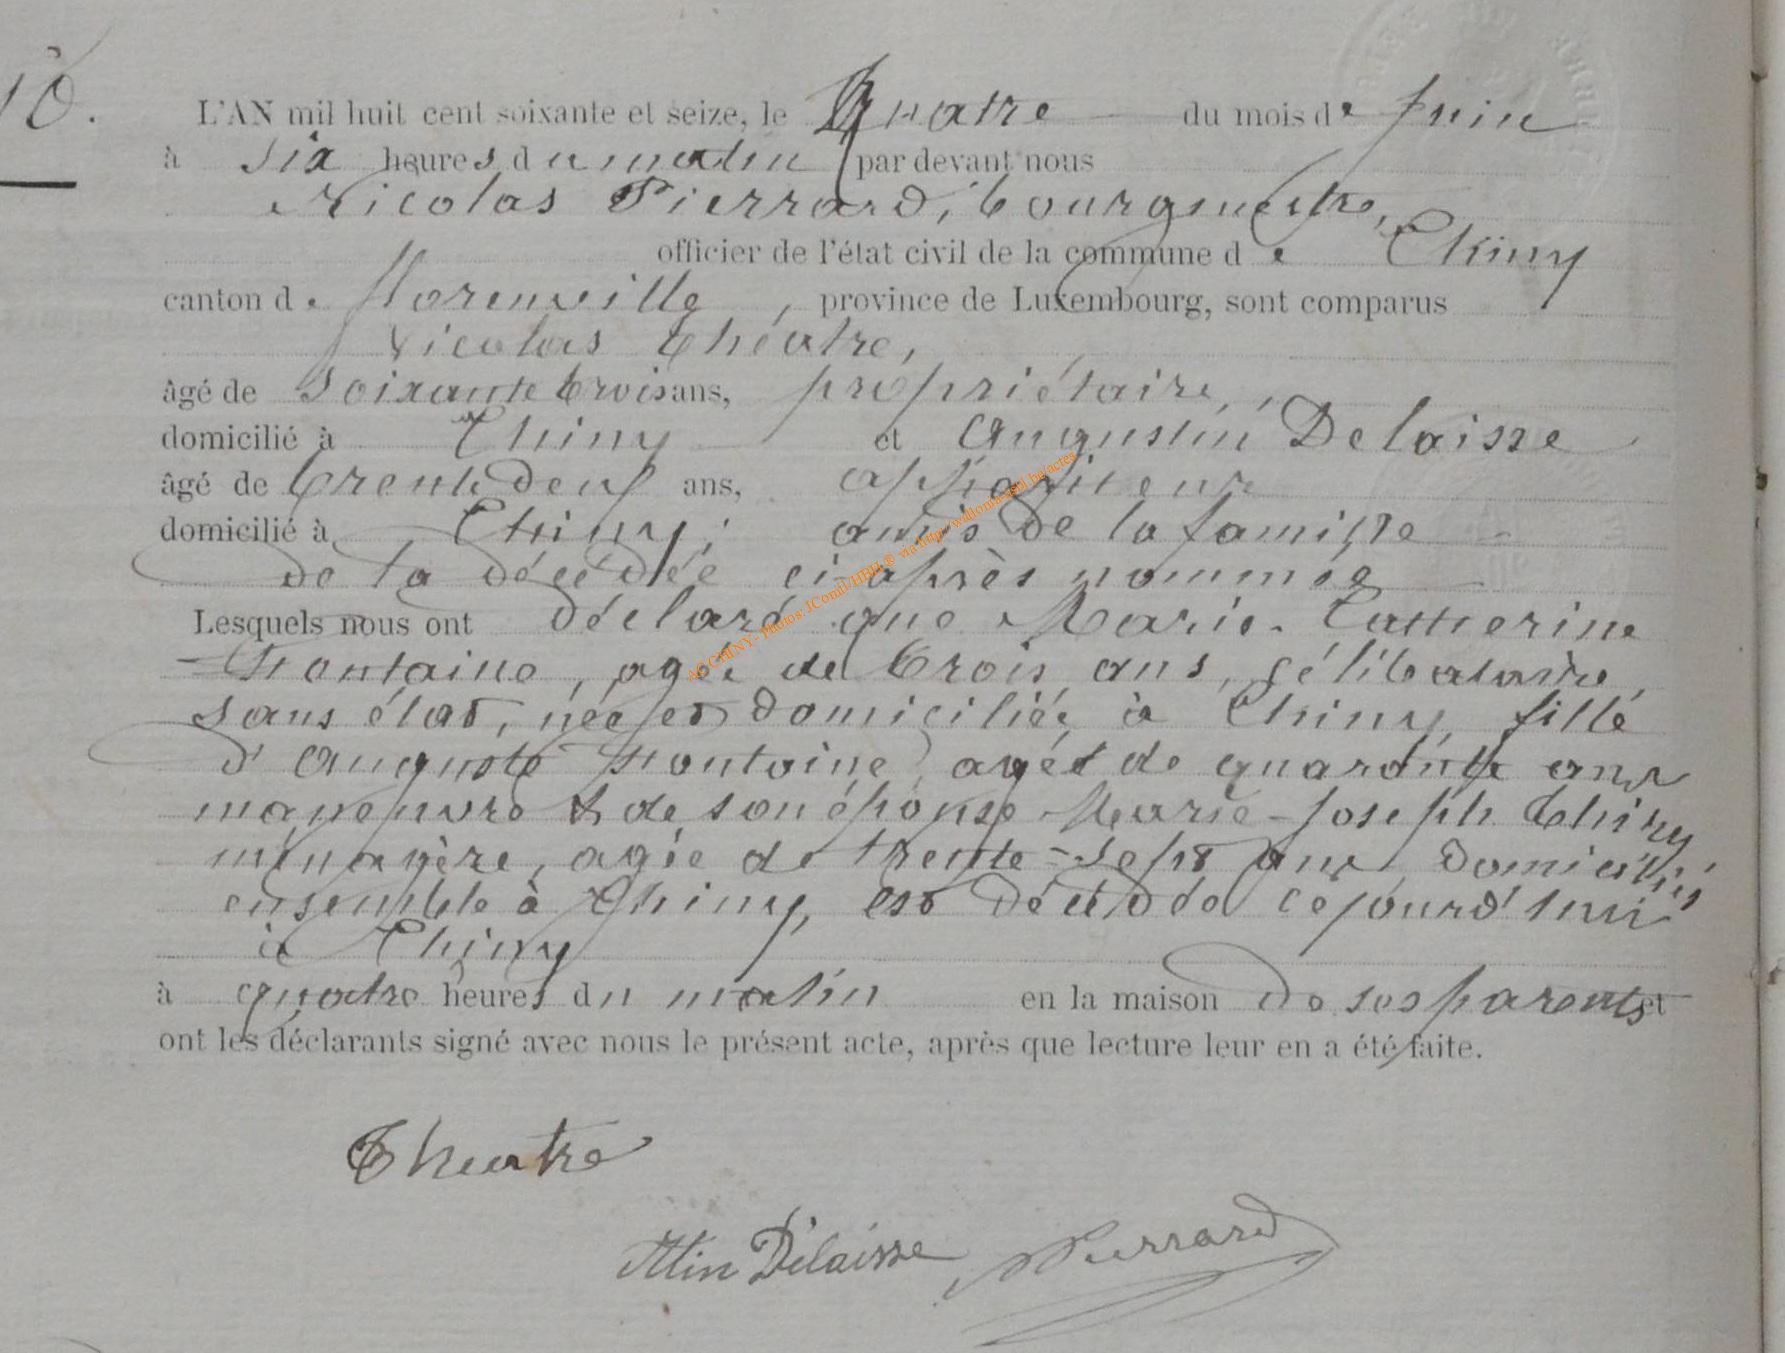 10.
L'AN mil huit cent soixante et seize, le Quatre du mois de juin
à six heures du matin par devant nous
Nicolas Pierrard, bourgmestre,
officier de l'état civil de la commune de Chiny
canton de florenville, province de Luxembourg, sont comparus
Nicolas Théâtre,
âgé de soixante trois ans, propriétaire,
domicilié à Chiny et Augustin Delaisse
âgé de trente deux ans, appariteur
domicilié à Chiny, amis de la famille
de la décédée ci-après nommée
Lesquels nous ont déclaré que Marie-Catherine
Fontaine, agée de trois ans, célibataire,
sans état, née et domiciliée à Chiny, fille
d'Auguste Fontaine, agé de quarante ans
manoeuvre & de son épouse Marie-Joseph Thiry
ménagère, agée de trente-sept ans, domiciliés
ensemble à Chiny, est décédée cejourd'hui
à Chiny
à quatre heures du matin en la maison de ses parents et
ont les déclarants signé avec nous le présent acte, après que lecture leur en a été faite.
Theatre
Atin Delaisse Pierrard
AC CHINY- Photos: JComil/HBH ® via http://wallonia-asbl.be/actes